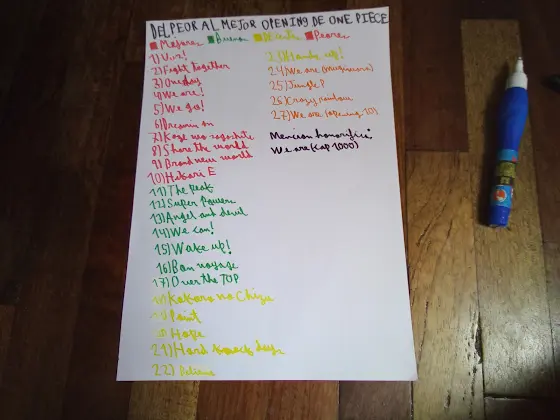 DEL PEOR AL MEJOR OPENING DE ONE PIECE
Mejores Buenos Decente Peores
1) Uuu!
2) Fight together
3) One day
4) We are!
5) We go!
6) Dreamin on
7) Kaze wo sagashite
8) Share the world
9) Brand new world
10) Hikari E
11) The peak
12) Super Powers
13) Angel and devil
14) We can!
15) Wake up!
16) Bon voyage
17) Over the TOP
18) Kokoro no Chizu
19) Paint
20) Hope
21) Hard knock days
22) Believe
23) Hands up!
24) We are (mugiwaras)
25) Jungle P
26) Crazy rainbow
27) We are (opening 10)
Mencion honorifica:
We are (cap 1000)